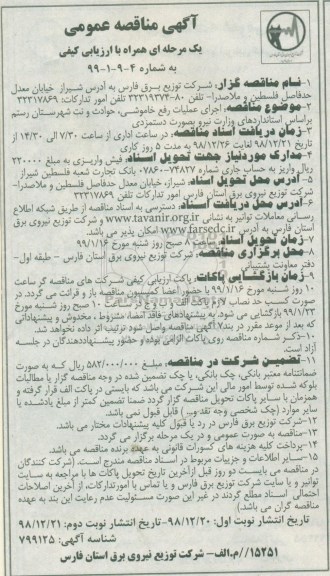 آگهی مناقصه عمومی
یک مرحله ای همراه با ارزیابی کیفی
به شماره ۴-۹-۱-۹۹
۱- نام مناقصه گزار: شرکت توزیع برق فارس به آدرس شیراز خیابان معدل
حدفاصل فلسطین و ملاصدرا- تلفن ۸۰-۳۲۳۱۹۳۷۴ تلفن امور تدارکات: ۳۲۳۱۷۸۶۹
۲- موضوع مناقصه: اجرای عملیات رفع خاموشی، حوادث و نت شهرستان رستم
براساس استانداردهای وزارت نیرو بصورت دستمزدی
۳- زمان دریافت اسناد مناقصه: در ساعات اداری از ساعت ۷/۳۰ الی ۱۴/۳۰ از
تاریخ ۹۸/۱۲/۲۱ لغایت ۹۸/۱۲/۲۶ به مدت ۵ روز کاری
۴- مدارک موردنیاز جهت تحویل اسناد: فیش واریزی به مبلغ ۲۲۰۰۰۰
ریال واریز به حساب جاری شماره ۷۸۶۰۰۷۴۸۲۷ بانک تجارت شعبه فلسطین شیراز
۵- آدرس محل تحویل اسناد: شیراز، خیابان معدل حدفاصل فلسطین و ملاصدرا-
شرکت توزیع نیروی برق استان فارس امور تدارکات تلفن ۳۲۳۱۷۸۶۹
۶- آدرس محل دریافت اسناد: دسترسی به اسناد مناقصه از طریق شبکه اطلاع
رسانی معاملات توانیر به نشانی www.tavanir.org.ir و شرکت توزیع نیروی برق
فارس www.farsedc.ir امکان پذیر می باشد.
۷- زمان تحویل اسناد: ساعت ۹ صبح روز شنبه مورخ ۹۹/۱/۱۶
۸- محل برگزاری مناقصه: شرکت توزیع نیروی برق استان فارس - طبقه اول-
دفتر معاونت پشتیبانی
۹- زمان بازگشایی پاکات: پاکت ارزیابی کیفی شرکت های مناقصه گر ساعت
۱۰ روز شنبه مورخ ۹۹/۱/۱۶ با حضور اعضا کمیسیون مناقصه باز و قرائت می گردد. در
صورت کسب حد نصاب لازم پاکت صبح روز شنبه مورخ
۹۹/۱/۲۳ بازگشایی می شود. به پیشنهادهای فاقد امضا، مشروط، مخدوش و پیشنهاداتی
که بعد از موعد مقرر در بند۷ آگهی مناقصه واصل شود ترتیب اثر داده نخواهد شد.
۱۰- ذکر شماره مناقصه روی پاکات الزامی بوده و حضور پیشنهاددهندگان در جلسه
آزاد است.
۱۱- تضمین شرکت در مناقصه: مبلغ ۵۸۲/۰۰۰/۰۰۰ ریال که به صورت
ضمانتنامه معتبر بانکی، چک بانکی، یا چک تضمین شده در وجه مناقصه گزار یا مطالبات
بلوکه شده توسط امور مالی این شرکت می باشد که بایستی در پاکت الف قرار گرفته و
همزمان با سایر پاکات تحویل مناقصه گزار گردد ضمنا تضمین کمتر از مبلغ یادشده یا
سایر موارد (چک شخصی وجه نقد و...) قابل قبول نمی باشد.
۱۲- شرکت توزیع برق فارس در رد یا قبول کلیه پیشنهادات مختار می باشد.
۱۳- مناقصه به صورت عمومی و در یک مرحله برگزار می گردد.
۱۴- پرداخت کلیه هزینه های کسورات قانونی به عهده برنده مناقصه می باشد.
۱۵- سایر اطلاعات و جزییات مربوط در اسناد مناقصه مندرج است. (شرکت کنندگان
در مناقصه می بایست دو روز قبل ازآخرین تاریخ تحویل پاکات ها با مراجعه به سایت
توانیر و یا سایت شرکت توزیع برق فارس و یا تماس با امورتدارکات، از آخرین اصلاحات
احتمالی اسناد مطلع گردند در غیر این صورت مسئولیت عدم رعایت این بند به عهده
مناقصه گران می باشد)
تاریخ انتشار نوبت اول: ۹۸/۱۲/۲۰- تاریخ انتشار نوبت دوم: ۹۸/۱۲/۲۱
شناسه آگهی: ۷۹۹۱۲۵
۱۵۲۵۱/م.الف- شرکت توزیع نیروی برق استان فارس